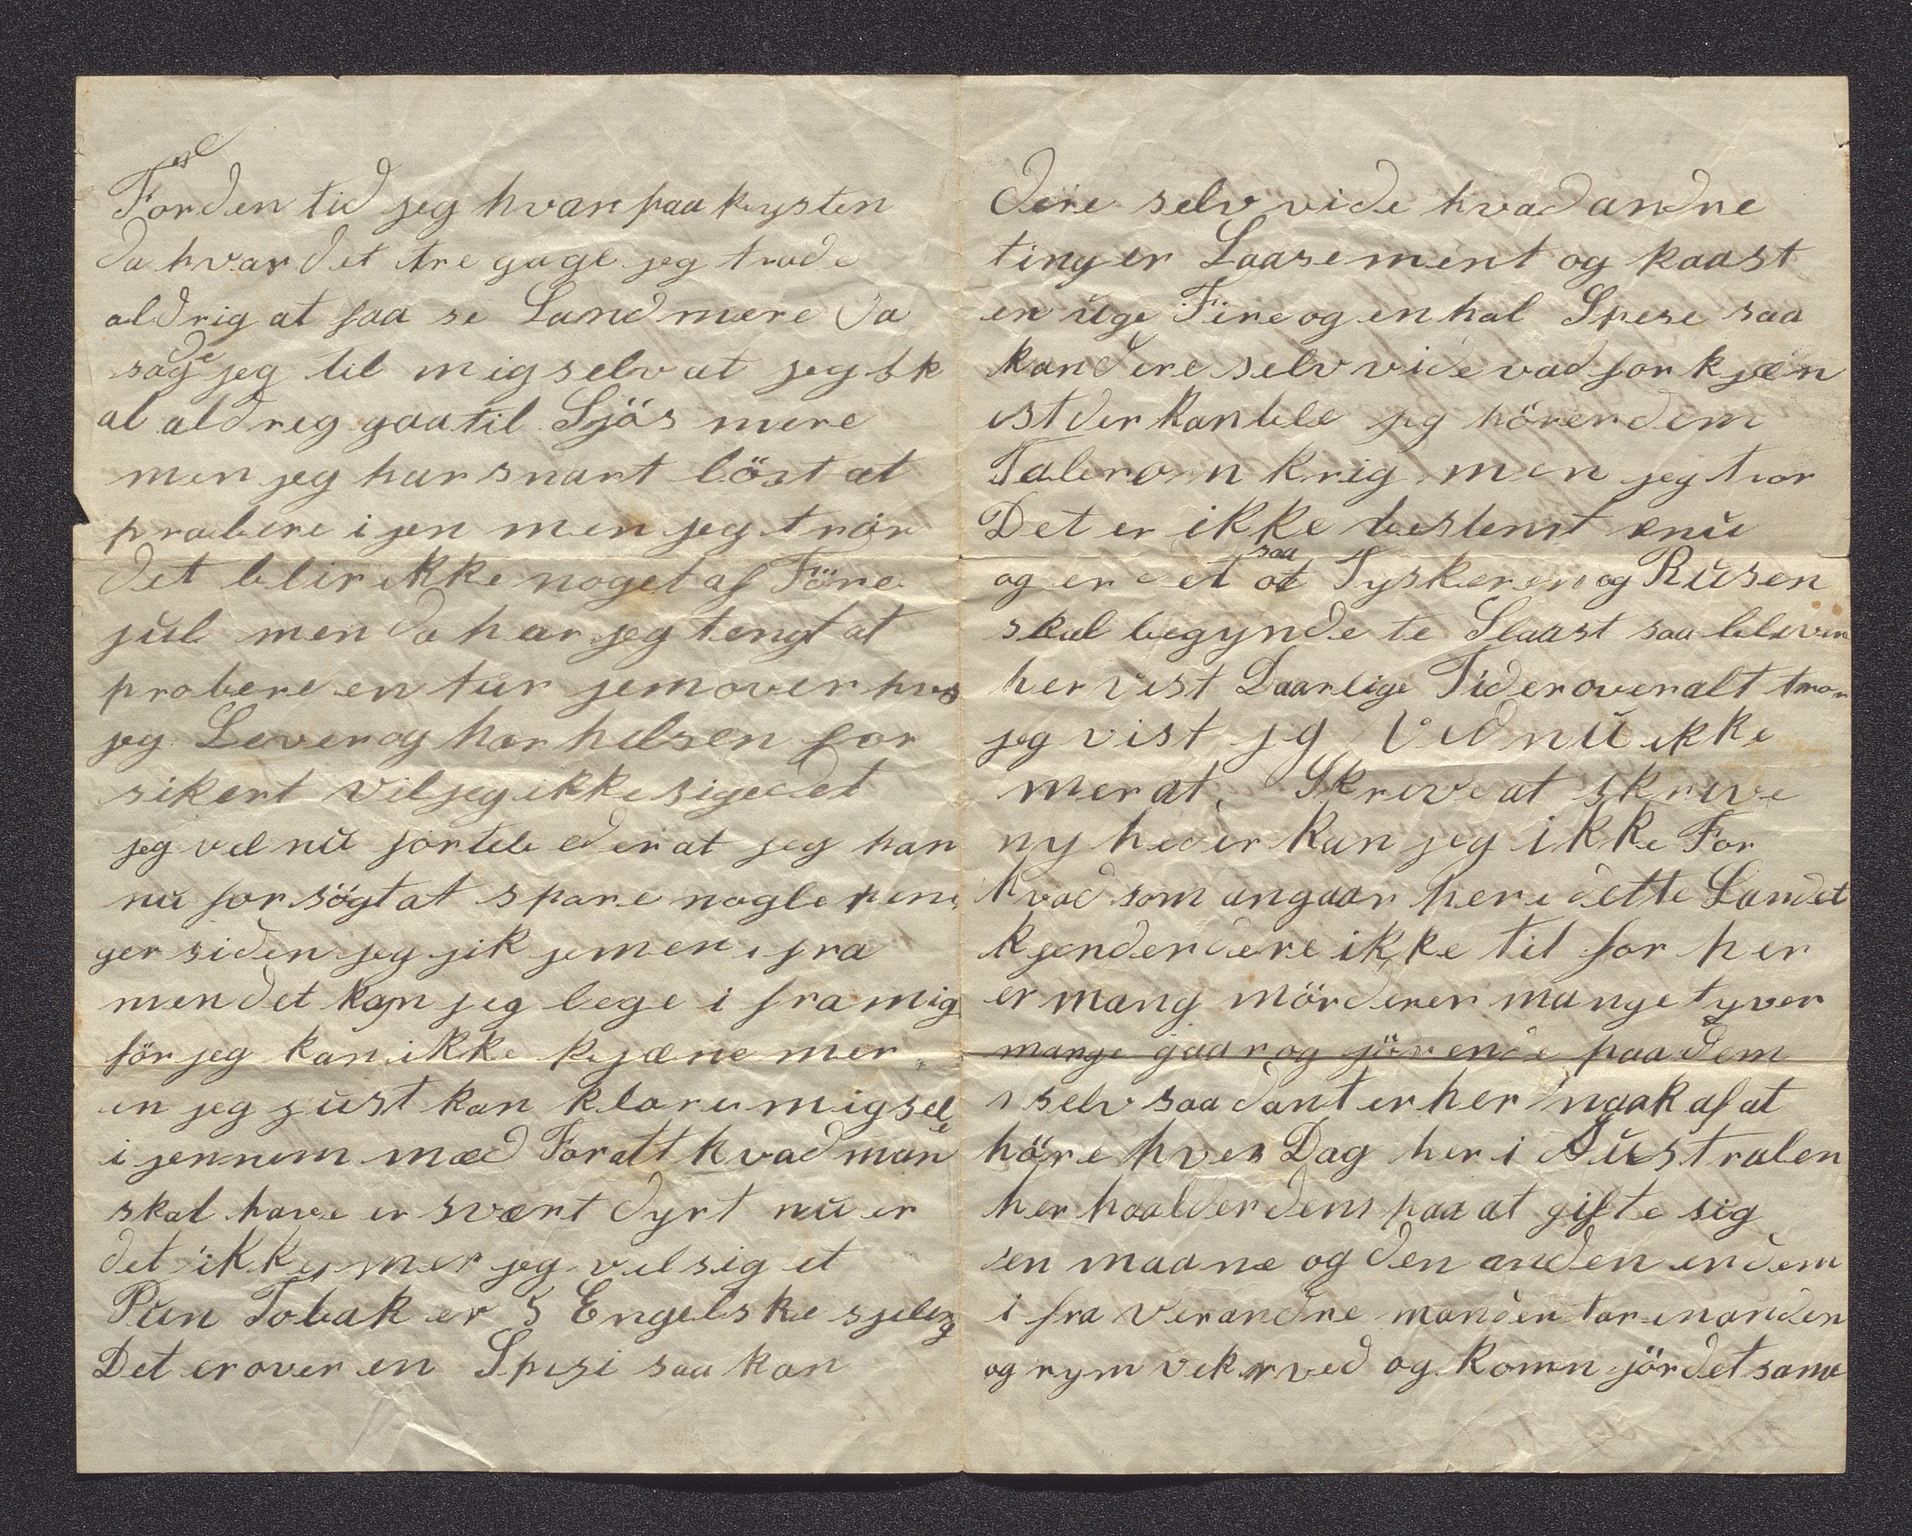 For den tid jeg hvar paa kysten
da hvar det tre gage jeg trode
aldrig at faa se Land mere da
sagde jeg til mig selv at jeg sk
al aldreg gaa til Sjös mere
men jeg har snart löst at
probere i jen men jeg tror
det blir ikke noget af Före
jul men da har jeg tengt at
probere en tur jem over hvis
jeg Lever og har helsen for
sikert vil jeg ikke sige det
jeg vil nu fortele eder at jeg har
nu forsögt at spare nogle pen
ger siden jeg jik jemen i fra
men det kan jeg lege i fra mig
för jeg kan ikke kjæne mer
en jeg just kan klare migsele
i jennem med For alt kvad man
skal have er svært dyrt nu er
det ikke mer jeg vil sig et
Pun Tobak er 5 Engelske sjeling
Det er over en Spesi saa kan
dere selv vide hvad andre
ting er Laasement og kaast
en uge Fire og en hal Spese saa
kan dere selv vide vad for kjæn
ist der kan bele jeg hörer dem
Taler om krig men jeg tror
Det er ikke bestemt enu
og er det saa at Tyskeren og Rusen
skal begynde te Slaast saa blever
her vist Daarlige Tider overalt tror
jeg vist jg Ved nu ikke
mer at Skrive at skrive
nyheder kan jeg ikke For
hvad som angaar her i dette Landet
kjender dere ikke til for her
er mang mörderer mange tyver
mange gaar og jör ende paa dem
selv saadant er her naak af at
höre hver Dag her i Australen
her haalder dem paa at gifte sig
en maane og den anden er dem
i fra verandre manden tar en anden
og rym vek ved og konn jör det same